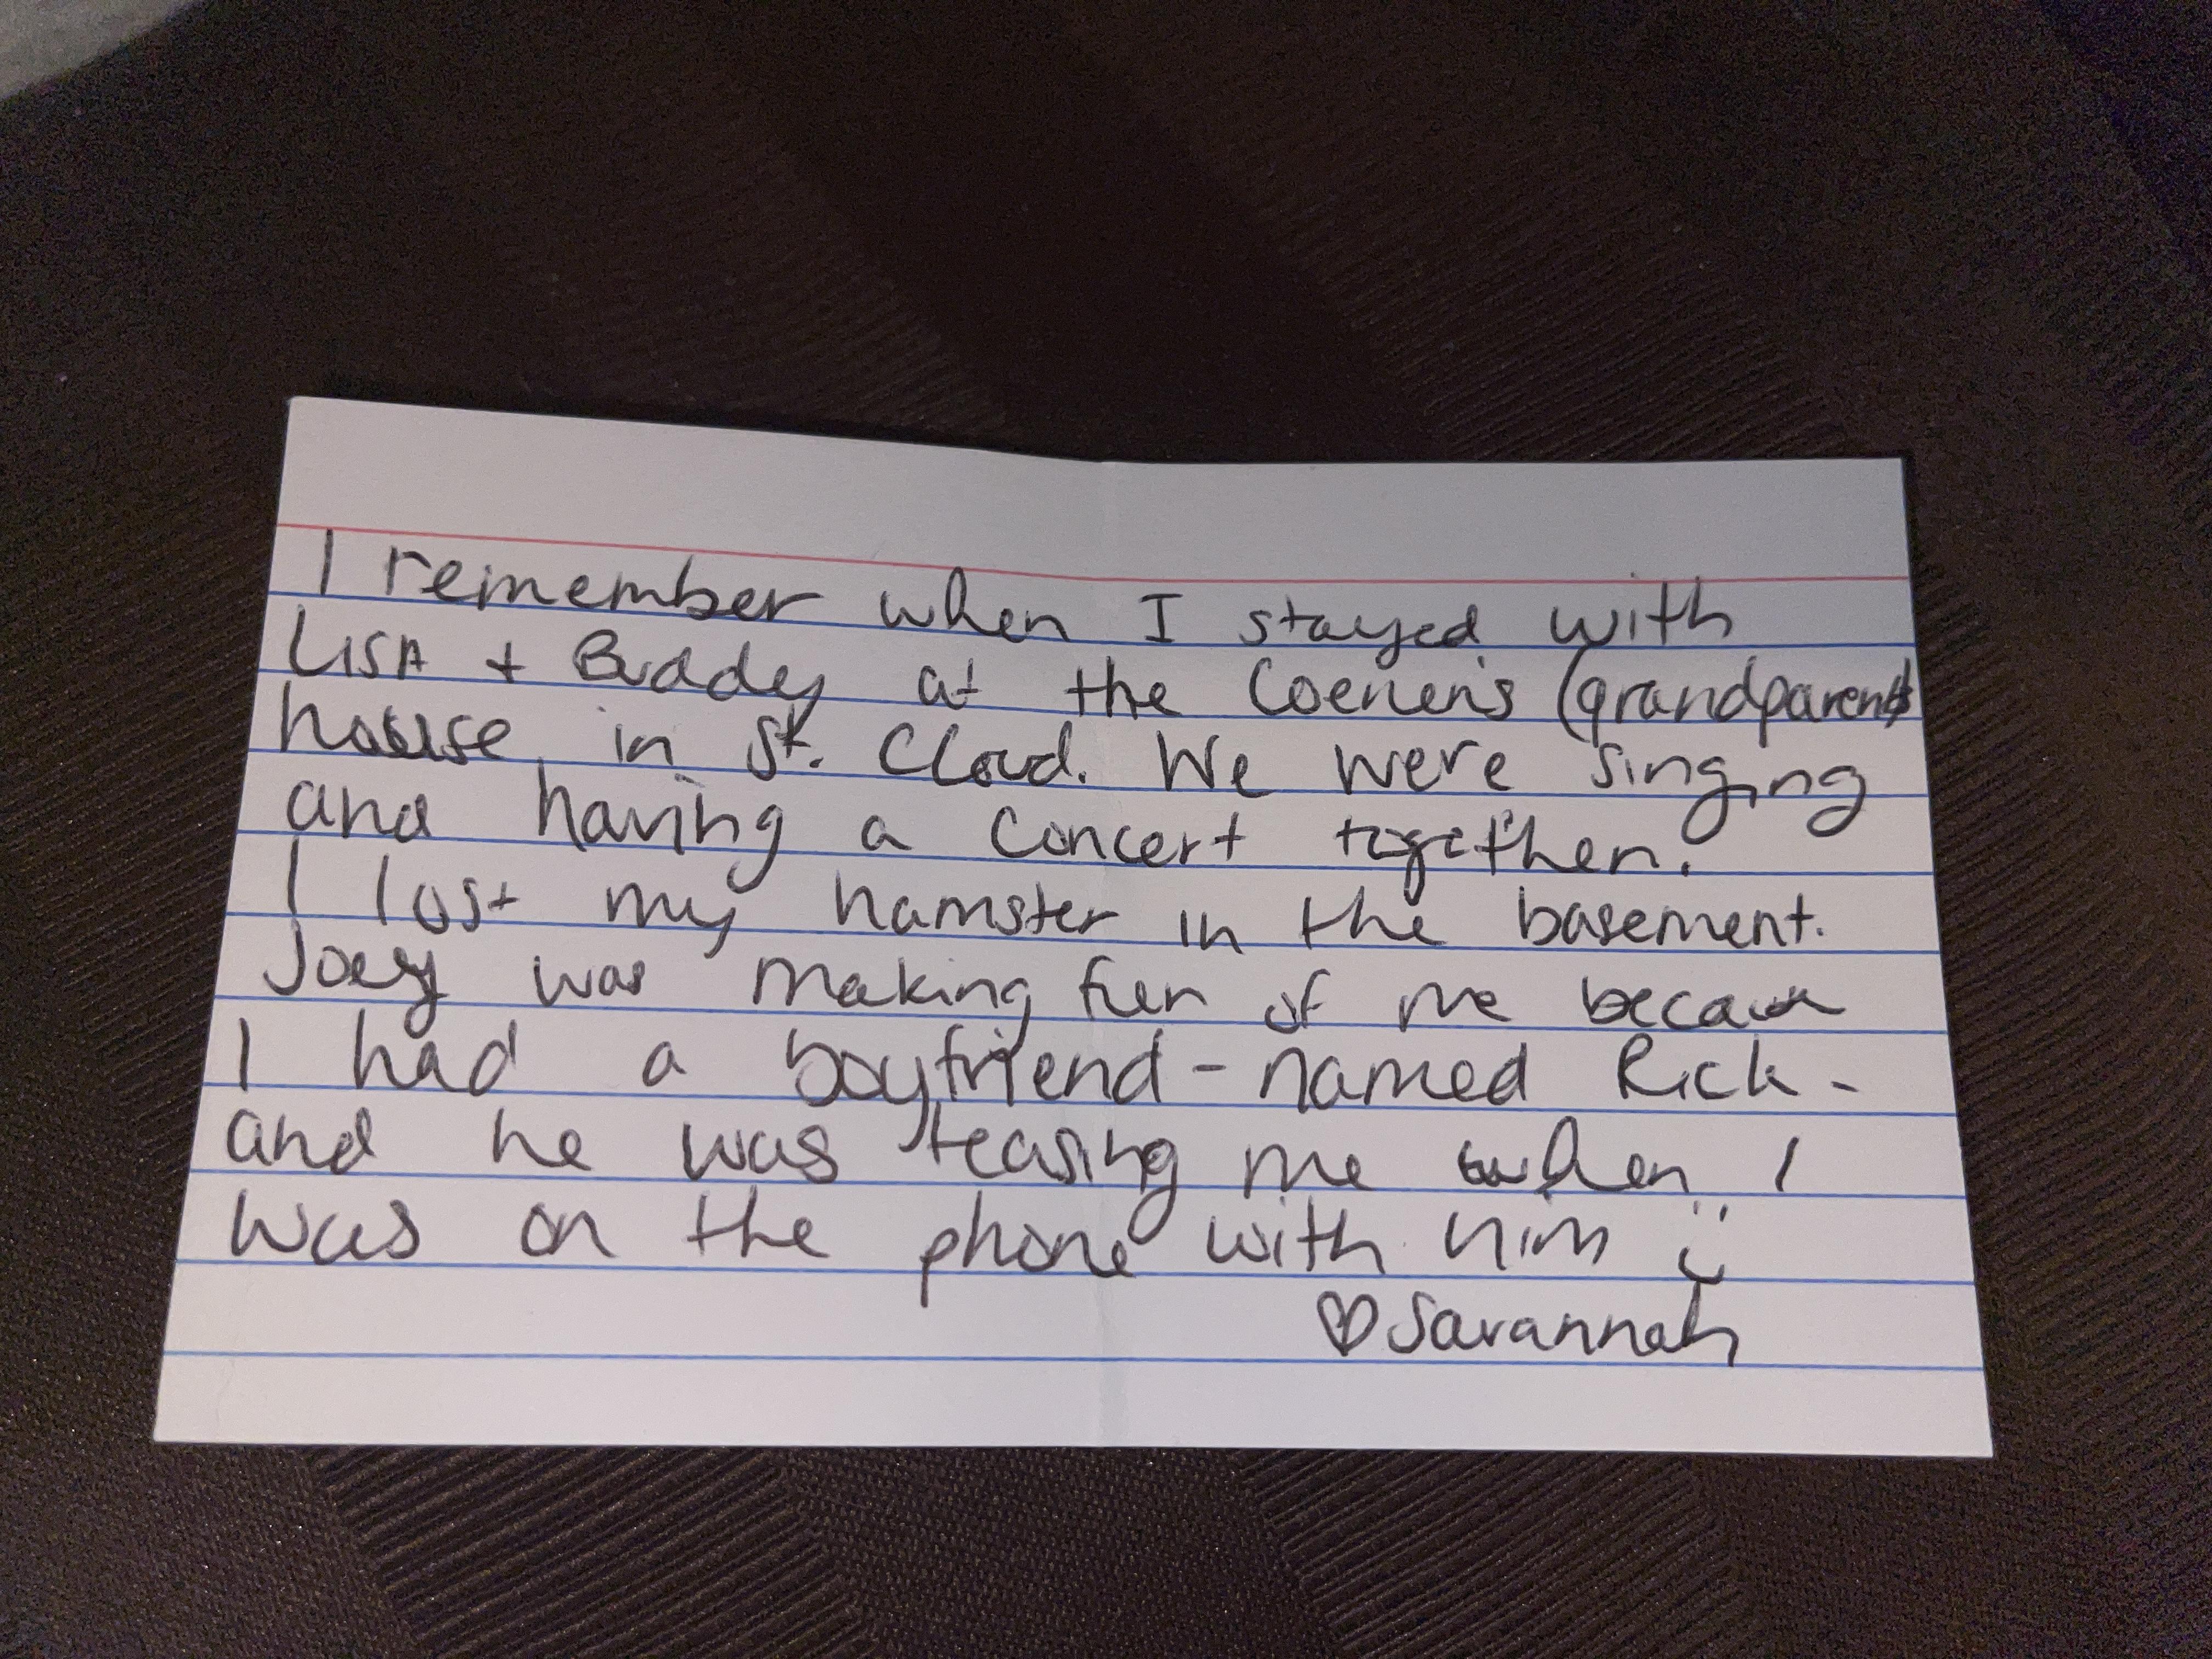 I remember when I stayed with
LISA + Buddy at the Coenen's (grandparents
house in St. Cloud. We were singing
and having a concert together.
I lost my hamster in the basement.
Joey was making fun of me because
I had a boyfriend - named Rick -
and he was teasing me when I
was on the phone with him :)
♡ Savannah